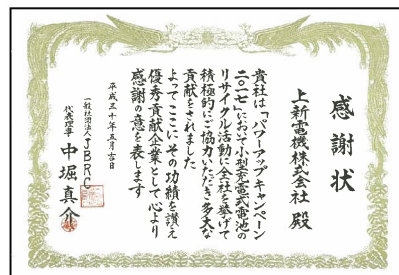 感謝状
上新電機株式会社 殿
貴社は「パワーアップキャンペーン
二〇一七」において小型充電式電池の
リサイクル活動に全社を挙げて
積極的にご協力いただき多大な
貢献をされました
よってここにその功績を讃え
優秀貢献企業として心より
感謝の意を表します
平成三十年五月吉日
一般社団法人JBRC
代表理事 中堀真介